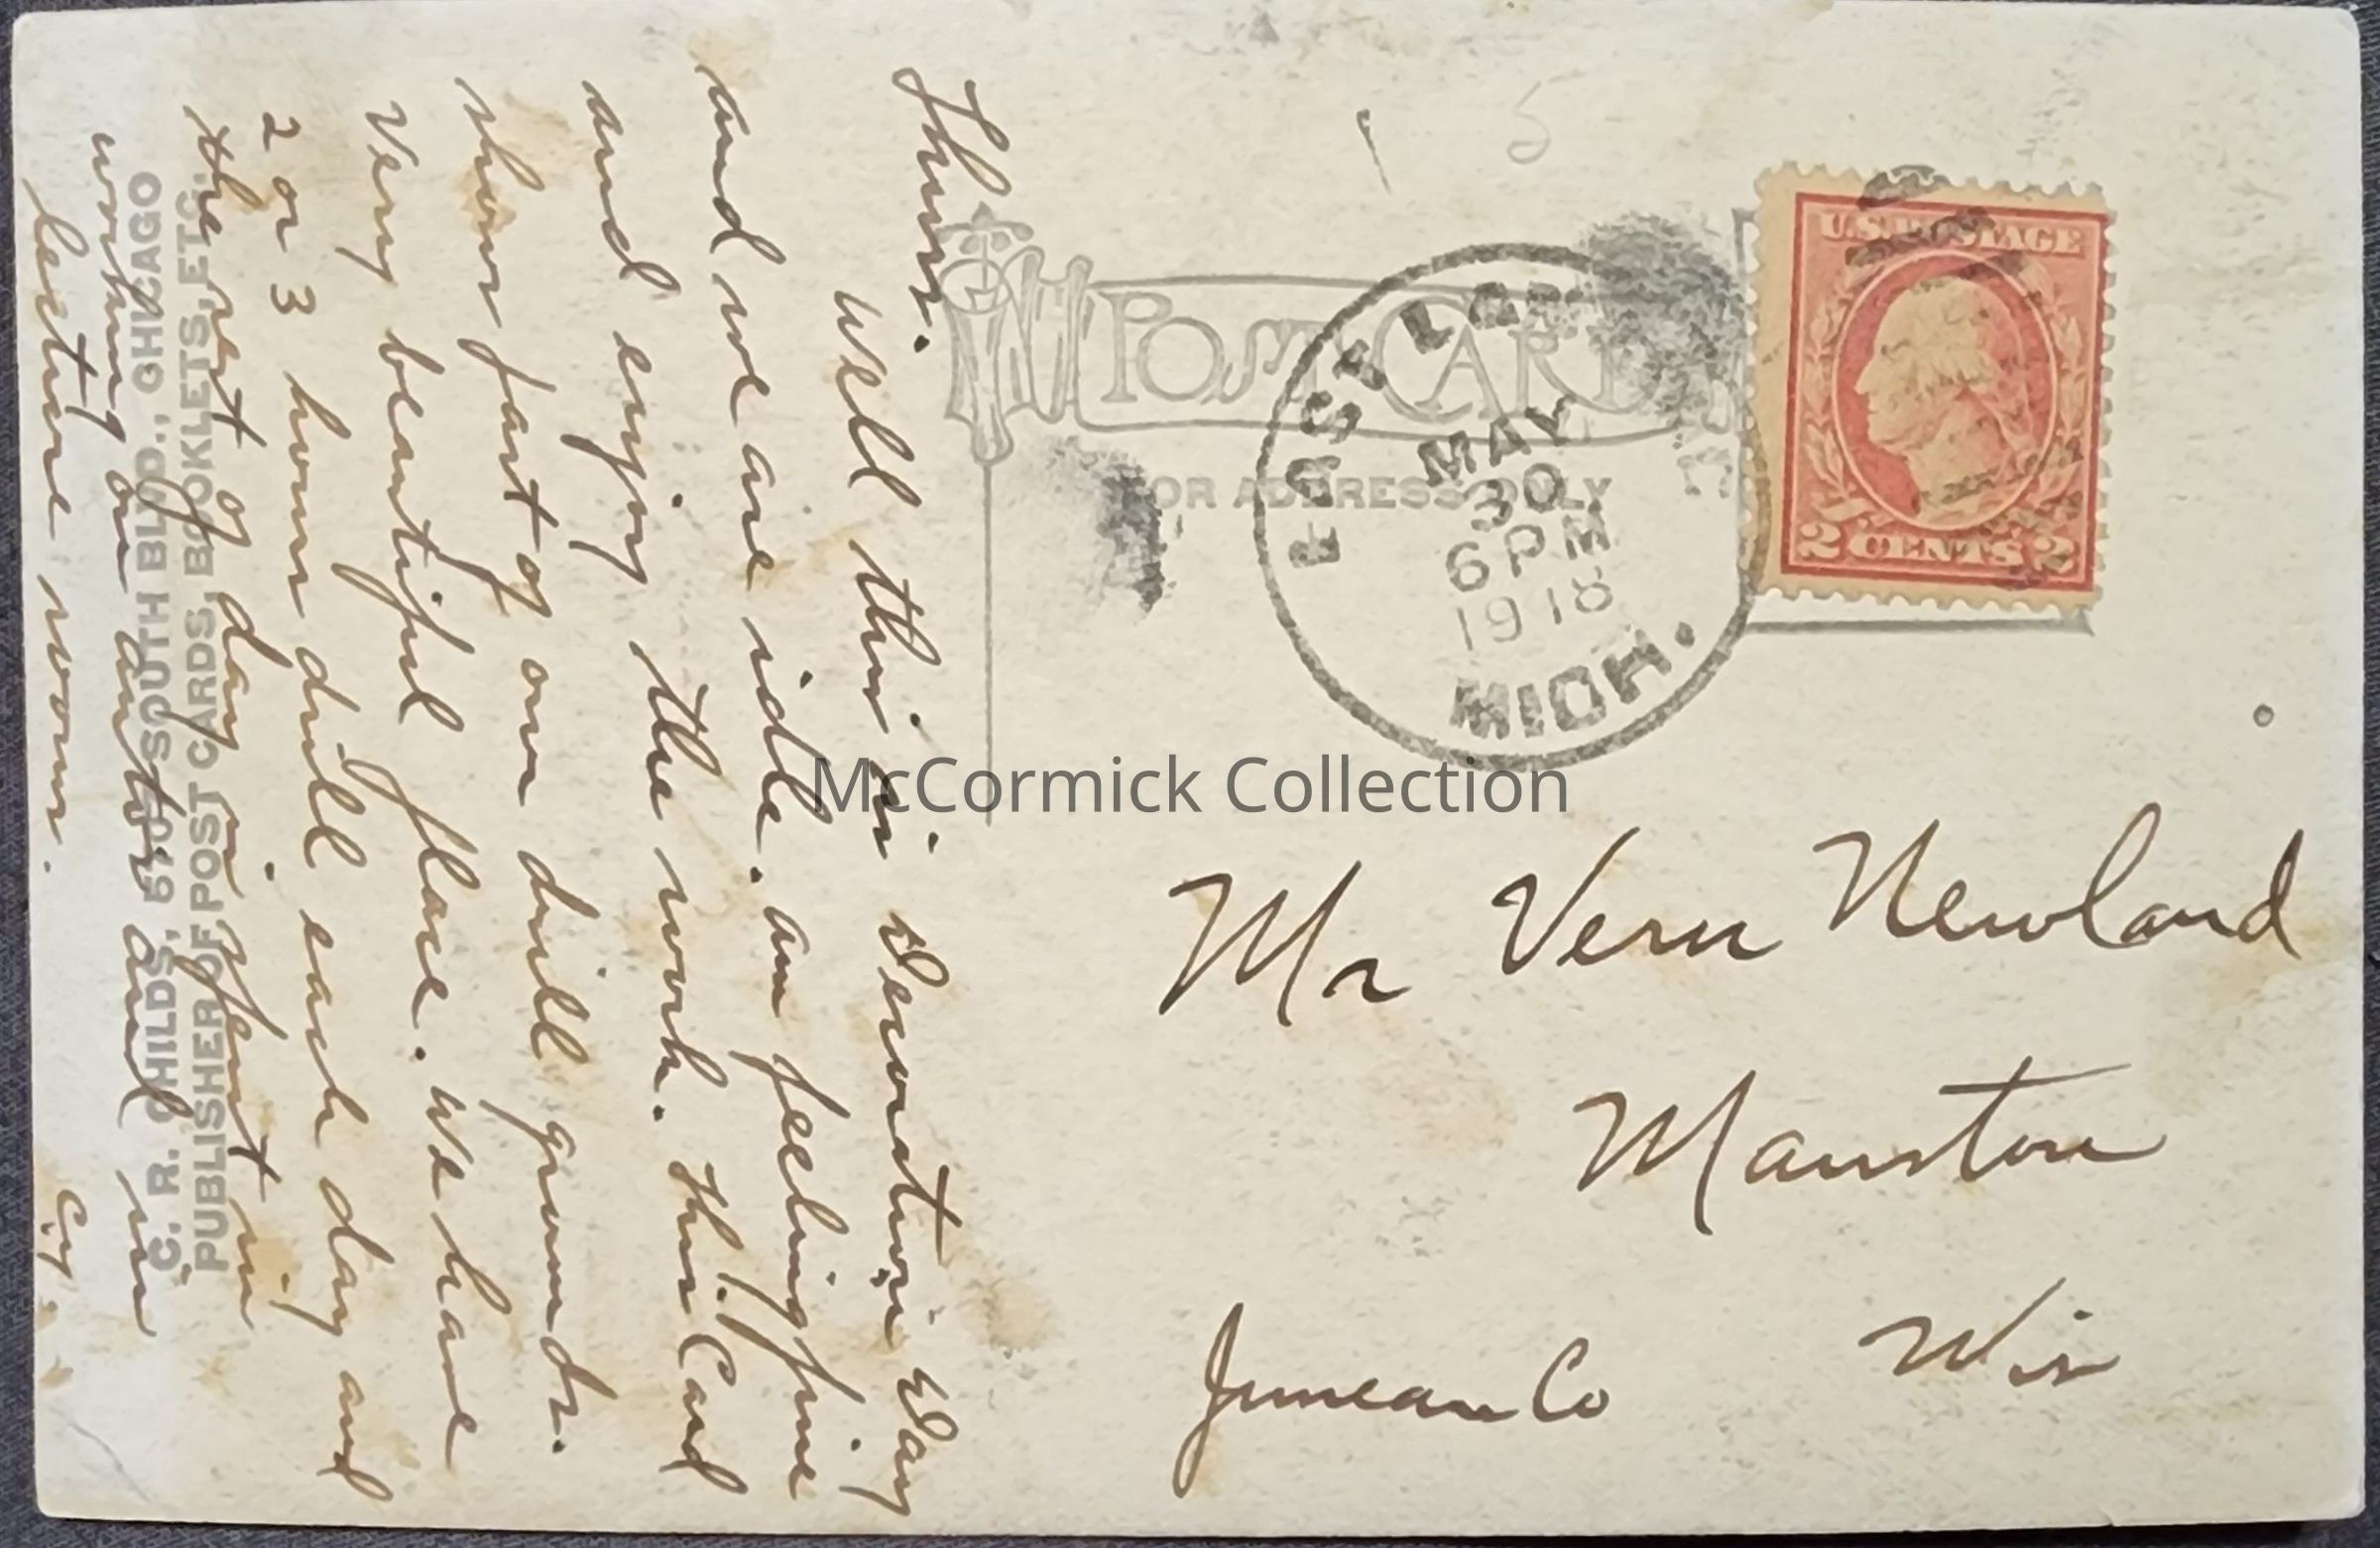 Thurs.
Well this is Decoration Day
and we are idle. am feeling fine
and enjoy the work. This Card
shows part of our drill grounds.
Very beautiful place. We have
2 or 3 hours drill each day and
the rest of day is spent in
working on autos and in
lecture rooms.
Cy.
C. R. CHILDS, SOUTH BLVD., CHICAGO
PUBLISHER OF POST CARDS, BOOKLETS, ETC.
POST CARD
FOR ADDRESS ONLY
EAST LAN
MAY
30
6 PM
1918
MICH.
U.S. POSTAGE
2 CENTS 2
5
McCormick Collection
Mr Vern Newland
Mauston
Juneau Co Wis